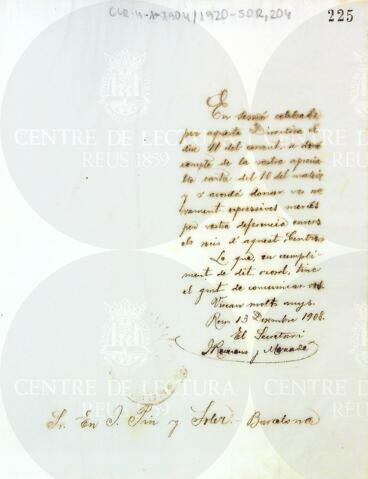 CLR-4-1-1904/1920-SOR,204
225
En sessió celebrada
per aquesta Directiva el
dia 11 del corrent, se doná
compte de la vostra aprecia
ble carta del 10 del mateix
y s'acordá donar vos
expressives mercés
per vostra deferencia envers
els socis d'aquest Centre
Lo que, en cumpli
ment de dit acord, tinc
el gust de comunicar vos.
Viscau molts anys.
Reus 13 Desembre 1908.
El Secretari
Sr. En J. Pin y Soler. Barcelona
CENTRE DE LECTURA
REUS 1859
CENTRE DE LECTURA
REUS 1859